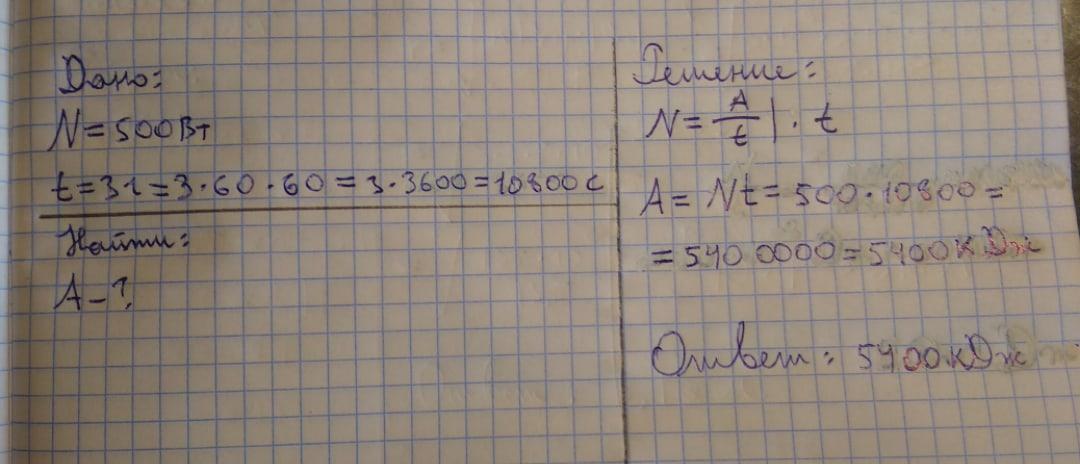 Дано:
N=500Вт
t=3ч=3·60·60=3·3600=10800с
Найти:
A-?
Решение:
N=A/t|·t
A=Nt=500·10800=
=5400000=5400кДж
Ответ: 5400кДж